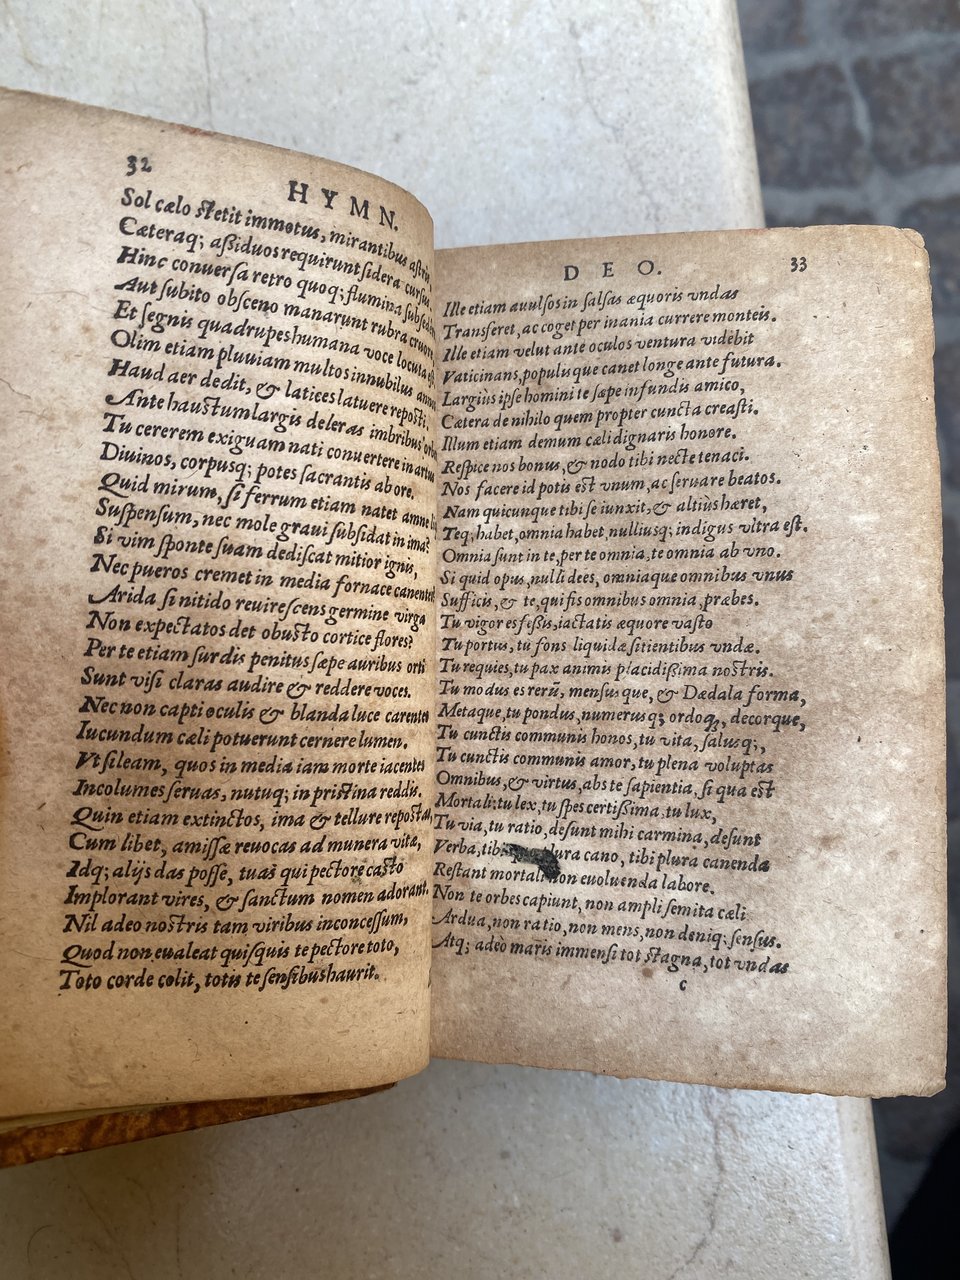 32
HYMN.
Sol cælo stetit immotus, mirantibus astris,
Cæteraq; aßiduos requirunt sidera cursus.
Hinc conuersa retro quoq; flumina
Aut subito obsceno manarunt rubra cruore,
Et segnis quadrupes humana voce locuta est,
Olim etiam pluuiam multos innubilus annos
Haud aer dedit, & latices latuere reposti.
Ante haustum largis deleras imbribus orbem
Tu cererem exiguam nati conuertere in artus
Diuinos, corpusq; potes sacrantis ab ore.
Quid mirum, si ferrum etiam natet amne
Suspensum, nec mole graui subsidat in ima?
Si vim sponte suam dediscat mitior ignis,
Nec pueros cremet in media fornace canentes?
Arida si nitido reuirescens germine virga
Non expectatos det obusto cortice flores?
Per te etiam surdis penitus sæpe auribus orti
Sunt visi claras audire & reddere voces.
Nec non capti oculis & blanda luce carentes
Iucundum cæli potuerunt cernere lumen.
Vt sileam, quos in media iam morte iacentes
Incolumes seruas, nutuq; in pristina reddis.
Quin etiam extinctos, ima & tellure repostos,
Cum libet, amissæ reuocas ad munera vitæ,
Idq; alijs das posse, tuas qui pectore casto
Implorant vires, & sanctum nomen adorant.
Nil adeo nostris tam viribus inconcessum,
Quod non eualeat quisquis te pectore toto,
Toto corde colit, totis te sensibus haurit.
DEO.
33
Ille etiam auulsos in salsas æquoris vndas
Transferet, ac coget per inania currere monteis.
Ille etiam velut ante oculos ventura videbit
Vaticinans, populisque canet longe ante futura.
Largiùs ipse homini te sæpe infundis amico,
Cætera de nihilo quem propter cuncta creasti.
Illum etiam demum cæli dignaris honore.
Respice nos bonus, & nodo tibi necte tenaci.
Nos facere id potis est vnum, ac seruare beatos.
Nam quicunque tibi se iunxit, & altiùs hæret,
Teq; habet, omnia habet, nulliusq; indigus vltra est.
Omnia sunt in te, per te omnia, te omnia ab vno.
Si quid opus, nulli dees, omniaque omnibus vnus
Sufficis, & te, qui fis omnibus omnia, præbes.
Tu vigor es feßis, iactatis æquore vasto
Tu portus, tu fons liquidæ sitientibus vndæ.
Tu requies, tu pax animis placidißima nostris.
Tu modus es rerū, mensusque, & Dædala forma,
Metaque, tu pondus, numerusq; ordoq, decorque,
Tu cunctis communis honos, tu vita, salusq;,
Tu cunctis communis amor, tu plena voluptas
Omnibus, & virtus, abs te sapientia, si qua est
Mortali: tu lex, tu spes certißima, tu lux,
Tu via, tu ratio, desunt mihi carmina, desunt
Verba, tibi plura cano, tibi plura canenda
Restant mortali non euoluenda labore.
Non te orbes capiunt, non ampli semita cæli
Ardua, non ratio, non mens, non deniq; sensus.
Atq; adeo maris immensi tot stagna, tot vndas
c